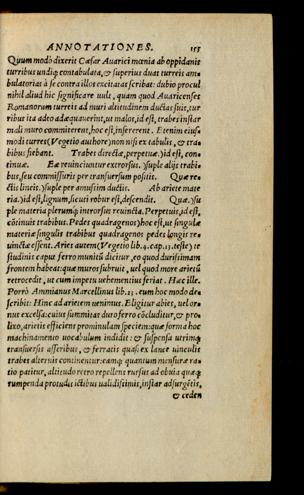 ANNOTATIONES. 155
Quum modò dixerit Cæsar Auarici mœnia ab oppidanis
turribus undiq; contabulata, & superius duat turreis am-
bulatorias à se contra illos excitatas scribat: dubio procul
nihil aliud hic significare uult, quam quod Auaricenses
Romanorum turreis ad muri altitudinem ductas suis, tur
ribus ita adeo adæquauerint, ut malos, id est, trabes instar
mali muro committerent, hoc est, insererent. Etenim eius-
modi turres (Vegetio authore) non nisi ex tabulis, & tra-
bibus fiebant. Trabes directæ, perpetuæ.) id est, con-
tinuæ. Eæ reuinciuntur extrorsus. ) suple alijs trabi-
bus, seu commissuris per transuersum positis. Quæ re-
ctis lineis. ) suple per amussim ductis. Ab ariete mate
ria. ) id est, lignum, sicuti robur est, descendit. Quæ. ) su
ple materia plerumq; introrsus reuincta. Perpetuis, id est,
cōtinuis trabibus. Pedes quadragenos) hoc est, ut singulæ
materiæ singulis trabibus quadragenos pedes longis re-
uinctæ essent. Aries autem (Vegetio lib. 4. cap. 23. teste) te
studinis caput ferro munitū dicitur, eo quod durissimam
frontem habeat: quæ muros subruit, uel quod more arietū
retrocedit, ut cum impetu uehementius feriat. Hæc ille.
Porrò Ammianus Marcellinus lib. 23. eum hoc modo de-
scribit: Hinc ad arietem uenimus. Eligitur abies, uel or-
nus excelsa: cuius summitas duro ferro cōcluditur, & pro-
lixo, arietis efficiens prominulam speciem: quæ forma hoc
machinamento uocabulum indidit: & suspensa utrimq;
transuersis asseribus, & ferratis quasi ex lance uinculis
trabes alterius continetur: eamq; quantum mensuræ ra-
tio patitur, altitudo retro repellens rursus ad obuia quæq;
rumpenda protudit ictibus ualidissimis, instar adsurgētis,
& ceden